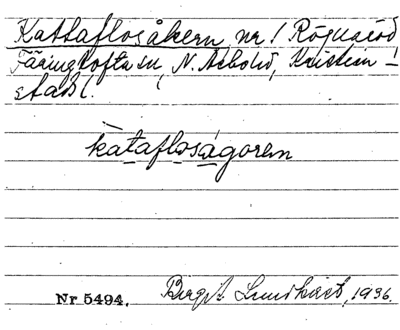 Kattaflosåkern, nr 1 Rögnaröd
Färingtofta sn, N. Åsbohd, Kristian-
stads l.
kataflosågoren
Nr 5494. Birgit Lundkvist, 1936.